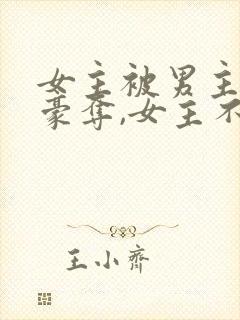 女主被男主
豪夺,女主不
王小齐